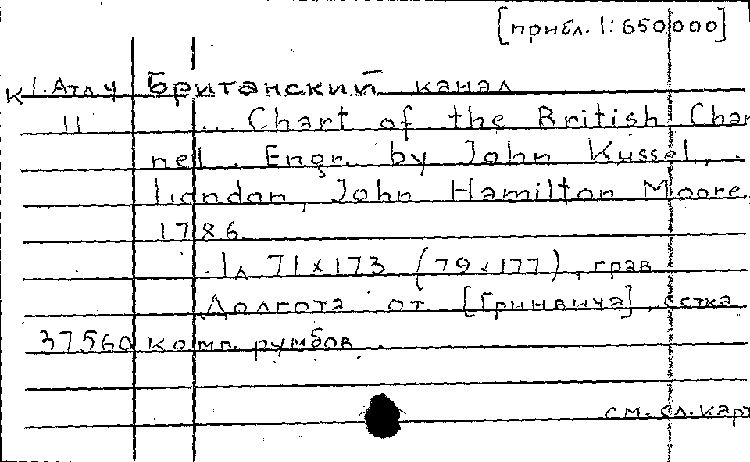 [прибл. 1:650000]
К 1. Атл. 4 Британский канал
11 ... Chart of the British Chan
nel. Engr. by John Russel,.
London, John Hamilton Moore,
1786
1л 71x173 (79x177), грав
Долгота от [Гринвича], сетка
37560 комп. румбов.
см. сл. карт